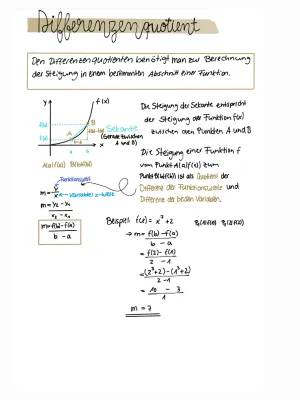 Differenzenquotient
Den Differenzenquotienten benötigt man zur Berechnung
der Steigung in einem bestimmten Abschnitt einer Funktion.
y
f(x)
B
A
Sekante
(Gerade zwischen
A und B)
f(b)
f(a)
f(b)-f(a)
b-a
a
b
x
A(a|f(a)) B(b|f(b))
Die Steigung der Sekante entspricht
der Steigung der Funktion f(x)
zwischen den Punkten A und B
Die Steigung einer Funktion f
vom Punkt A(a|f(a)) zum
Punkt B(b|f(b)) ist als Quotient der
Differenz der Funktionswerte und
Differenz der beiden Variablen.
Funktionswert
m = y
x
Variable / x-Wert
m = y₂ - y₁
x₂ - x₁
m = f(b) - f(a)
b - a
Beispiel: f(x) = x³+2
→ m = f(b) - f(a)
b - a
= f(2) - f(1)
2 - 1
= (2³+2) - (1³+2)
2 - 1
= 10 - 3
1
m = 7